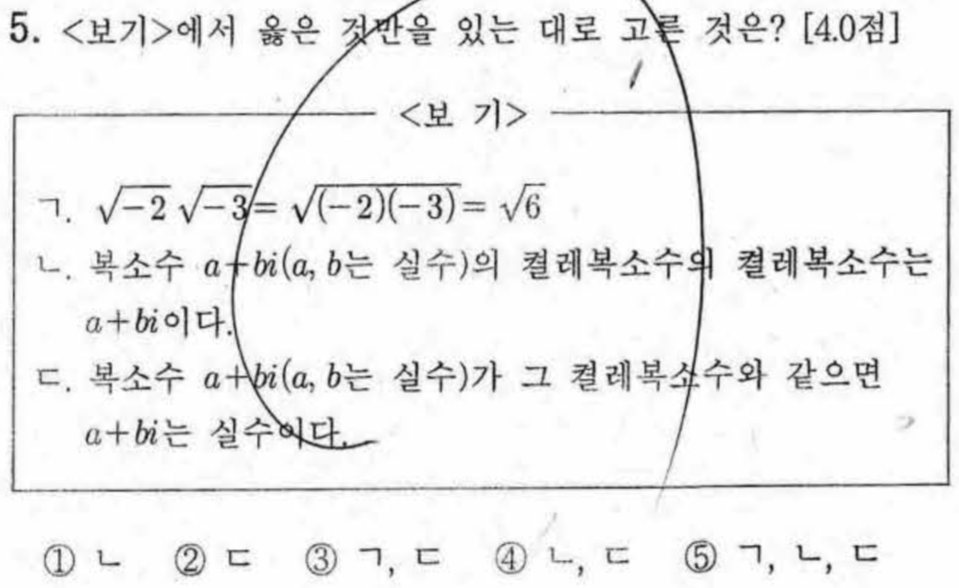 5. <보기>에서 옳은 것만을 있는 대로 고른 것은? [4.0점]
<보 기>
ㄱ. √-2 √-3 = √(-2)(-3) = √6
ㄴ. 복소수 a+bi(a, b는 실수)의 켤레복소수의 켤레복소수는
a+bi이다.
ㄷ. 복소수 a+bi(a, b는 실수)가 그 켤레복소수와 같으면
a+bi는 실수이다.
① ㄴ ② ㄷ ③ ㄱ, ㄷ ④ ㄴ, ㄷ ⑤ ㄱ, ㄴ, ㄷ